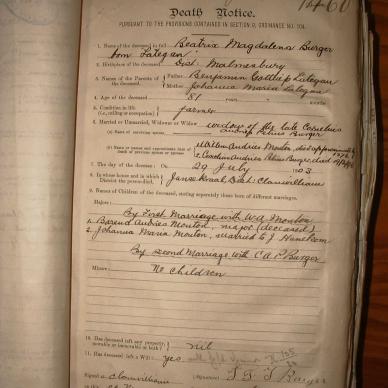 1460
Death Notice.
PURSUANT TO THE PROVISIONS CONTAINED IN SECTION 9, ORDINANCE NO. 104.
1. Name of the deceased in full Beatrix Magdalena Burger
born Lategan
2. Birthplace of the deceased Dist: Malmesbury
3. Names of the Parents of the deceased Father Benjamin Gottliep Lategan
Mother Johanna Maria Lategan
4. Age of the deceased 81 years months
5. Condition in life farmer
(i.e., calling or occupation)
6. Married or Unmarried, Widower or Widow widow of the late Cornelius
(a) Name of surviving spouse Burger
(b) Name or names and approximate date of death of previous spouse or spouses Willem Andries Mouton, died
Andries Burger, died
7. The decease of the deceased : On 29 July 1903
8. In whose house and in which District the person died Kraal Dist: Clanwilliam
9. Names of Children of the deceased, stating separately those born of different marriages.
Majors :
By First Marriage with W.A. Mouton
1. Barend Andries Mouton, major (deceased)
2. Johanna Maria Mouton, married to J.
By second Marriage with C A P Burger
Minors : No Children
10. Has deceased left any property, movable or immovable or both? nil
11. Has deceased left a Will : yes
Signed at Clanwilliam (Signature) Burger